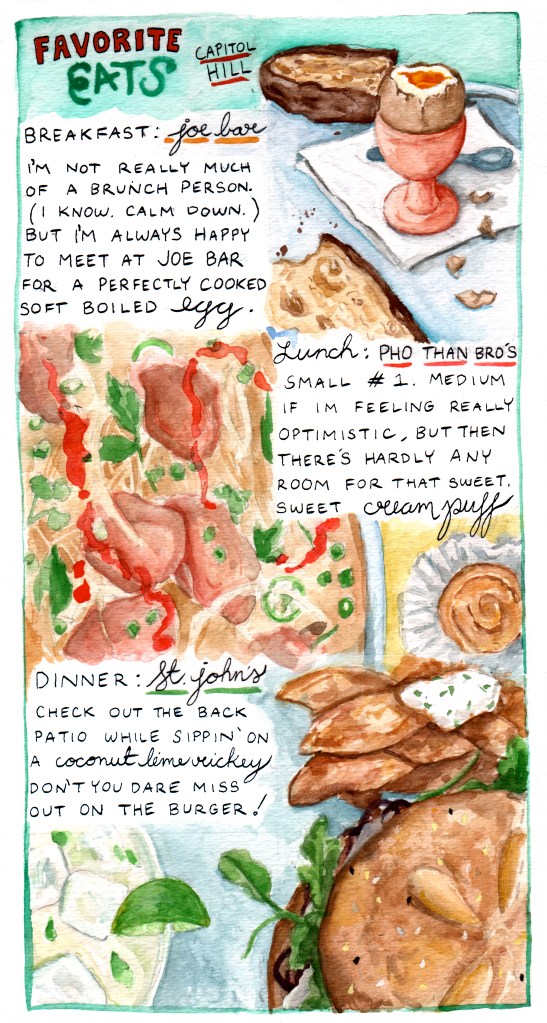 FAVORITE
EATS
CAPITOL
HILL
BREAKFAST: joe bar
I'M NOT REALLY MUCH
OF A BRUNCH PERSON.
(I KNOW. CALM DOWN.)
BUT I'M ALWAYS HAPPY
TO MEET AT JOE BAR
FOR A PERFECTLY COOKED
SOFT BOILED egg.
Lunch: PHO THAN BRO'S
SMALL #1. MEDIUM
IF IM FEELING REALLY
OPTIMISTIC, BUT THEN
THERE'S HARDLY ANY
ROOM FOR THAT SWEET,
SWEET cream puff
DINNER: St. john's
CHECK OUT THE BACK
PATIO WHILE SIPPIN' ON
A coconut lime rickey
DON'T YOU DARE MISS
OUT ON THE BURGER!